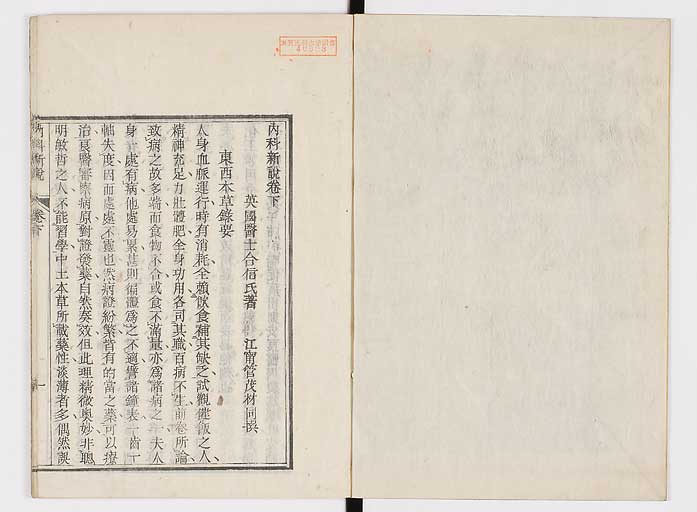 內科新說卷下
英國醫士合信氏著 江甯管茂材同撰
東西本草錄要
人身血脈運行時有消耗全賴飲食補其缺乏試觀健飯之人
精神充足力壯體肥全身功用各司其職百病不生前卷所論
致病之故多端而食物不合或食不滿量亦爲諸病之一夫人
身一處有病他處易累甚則徧體爲之不適譬諸鐘表一齒一
軸失度因而處處不靈也然病證紛繁皆有的當之藥可以療
治良醫審察病原對證發藥自然奏效但此理精微奧妙非聰
明敏哲之人不能習學中土本草所載藥性淡薄者多偶然誤
內科新說
卷下
一